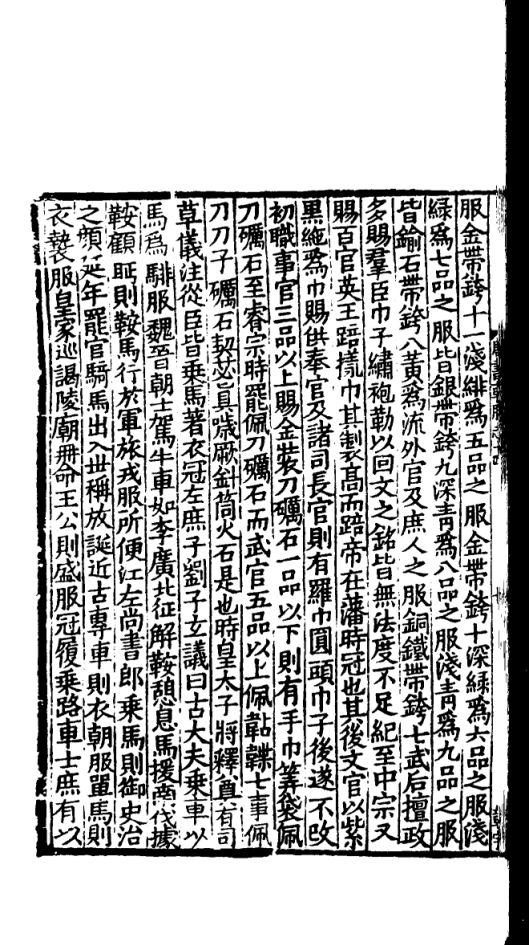 服金帶銙十一淺緋爲五品之服金帶銙十深綠爲六品之服淺
綠爲七品之服皆銀帶銙九深青爲八品之服淺青爲九品之服
皆鍮石帶銙八黃爲流外官及庶人之服銅鐵帶銙七武后擅政
多賜羣臣巾子繡袍勒以回文之銘皆無法度不足紀至中宗又
賜百官英王踣㨾巾其製高而踣帝在藩時冠也其後文官以紫
黑絁爲巾賜供奉官及諸司長官則有羅巾圓頭巾子後遂不改
初職事官三品以上賜金裝刀礪石一品以下則有手巾筭袋佩
刀礪石至睿宗時罷佩刀礪石而武官五品以上佩䩞韘七事佩
刀刀子礪石契苾真噦厥針筒火石是也時皇太子將釋奠有司
草儀注從臣皆乘馬著衣冠左庶子劉子玄議曰古大夫乘車以
馬爲騑服魏晉朝士駕牛車如李廣北征解鞍憩息馬援南伐據
鞍顧眄則鞍馬行於軍旅戎服所便江左尚書郎乘馬則御史治
之顏延年罷官騎馬出入世稱放誕近古專車則衣朝服單馬則
衣褻服皇家巡謁陵廟冊命王公則盛服冠履乘路車士庶有以